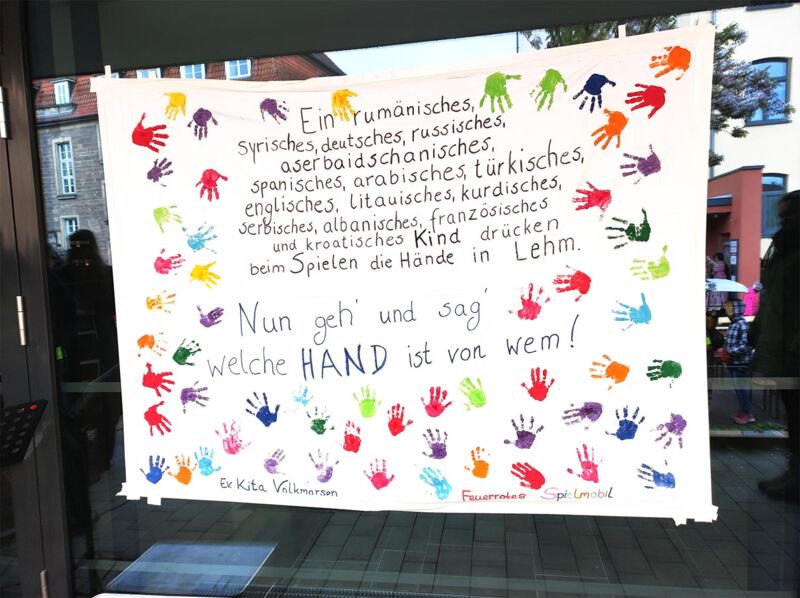 Ein rumänisches,
syrisches, deutsches, russisches,
aserbaidschanisches,
spanisches, arabisches, türkisches,
englisches, litauisches, kurdisches,
serbisches, albanisches, französisches
und kroatisches Kind drücken
beim Spielen die Hände in Lehm.
Nun geh' und sag'
welche HAND ist von wem!
Ev. Kita Volkmarsen
Feuerrotes Spielmobil